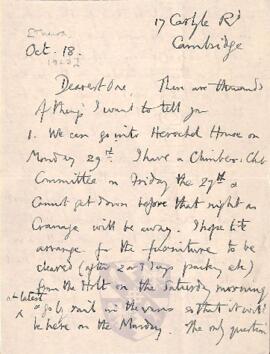 17 Carlyle Rd
Cambridge
Oct. 18.
Dearest One. There are thousands
of things I want to tell you
1. We can go into Herschel House on
Monday 29th. I have a Climbers' Club
Committee on Friday the 27th &
cannot get down before that night as
Cranage will be away. I hope to
arrange for the furniture to be
cleared (after 2 or 3 days packing etc)
from the Holt on the Saturday morning
at latest
& go by rail in the vans so that it will
be here on the Monday. The only question